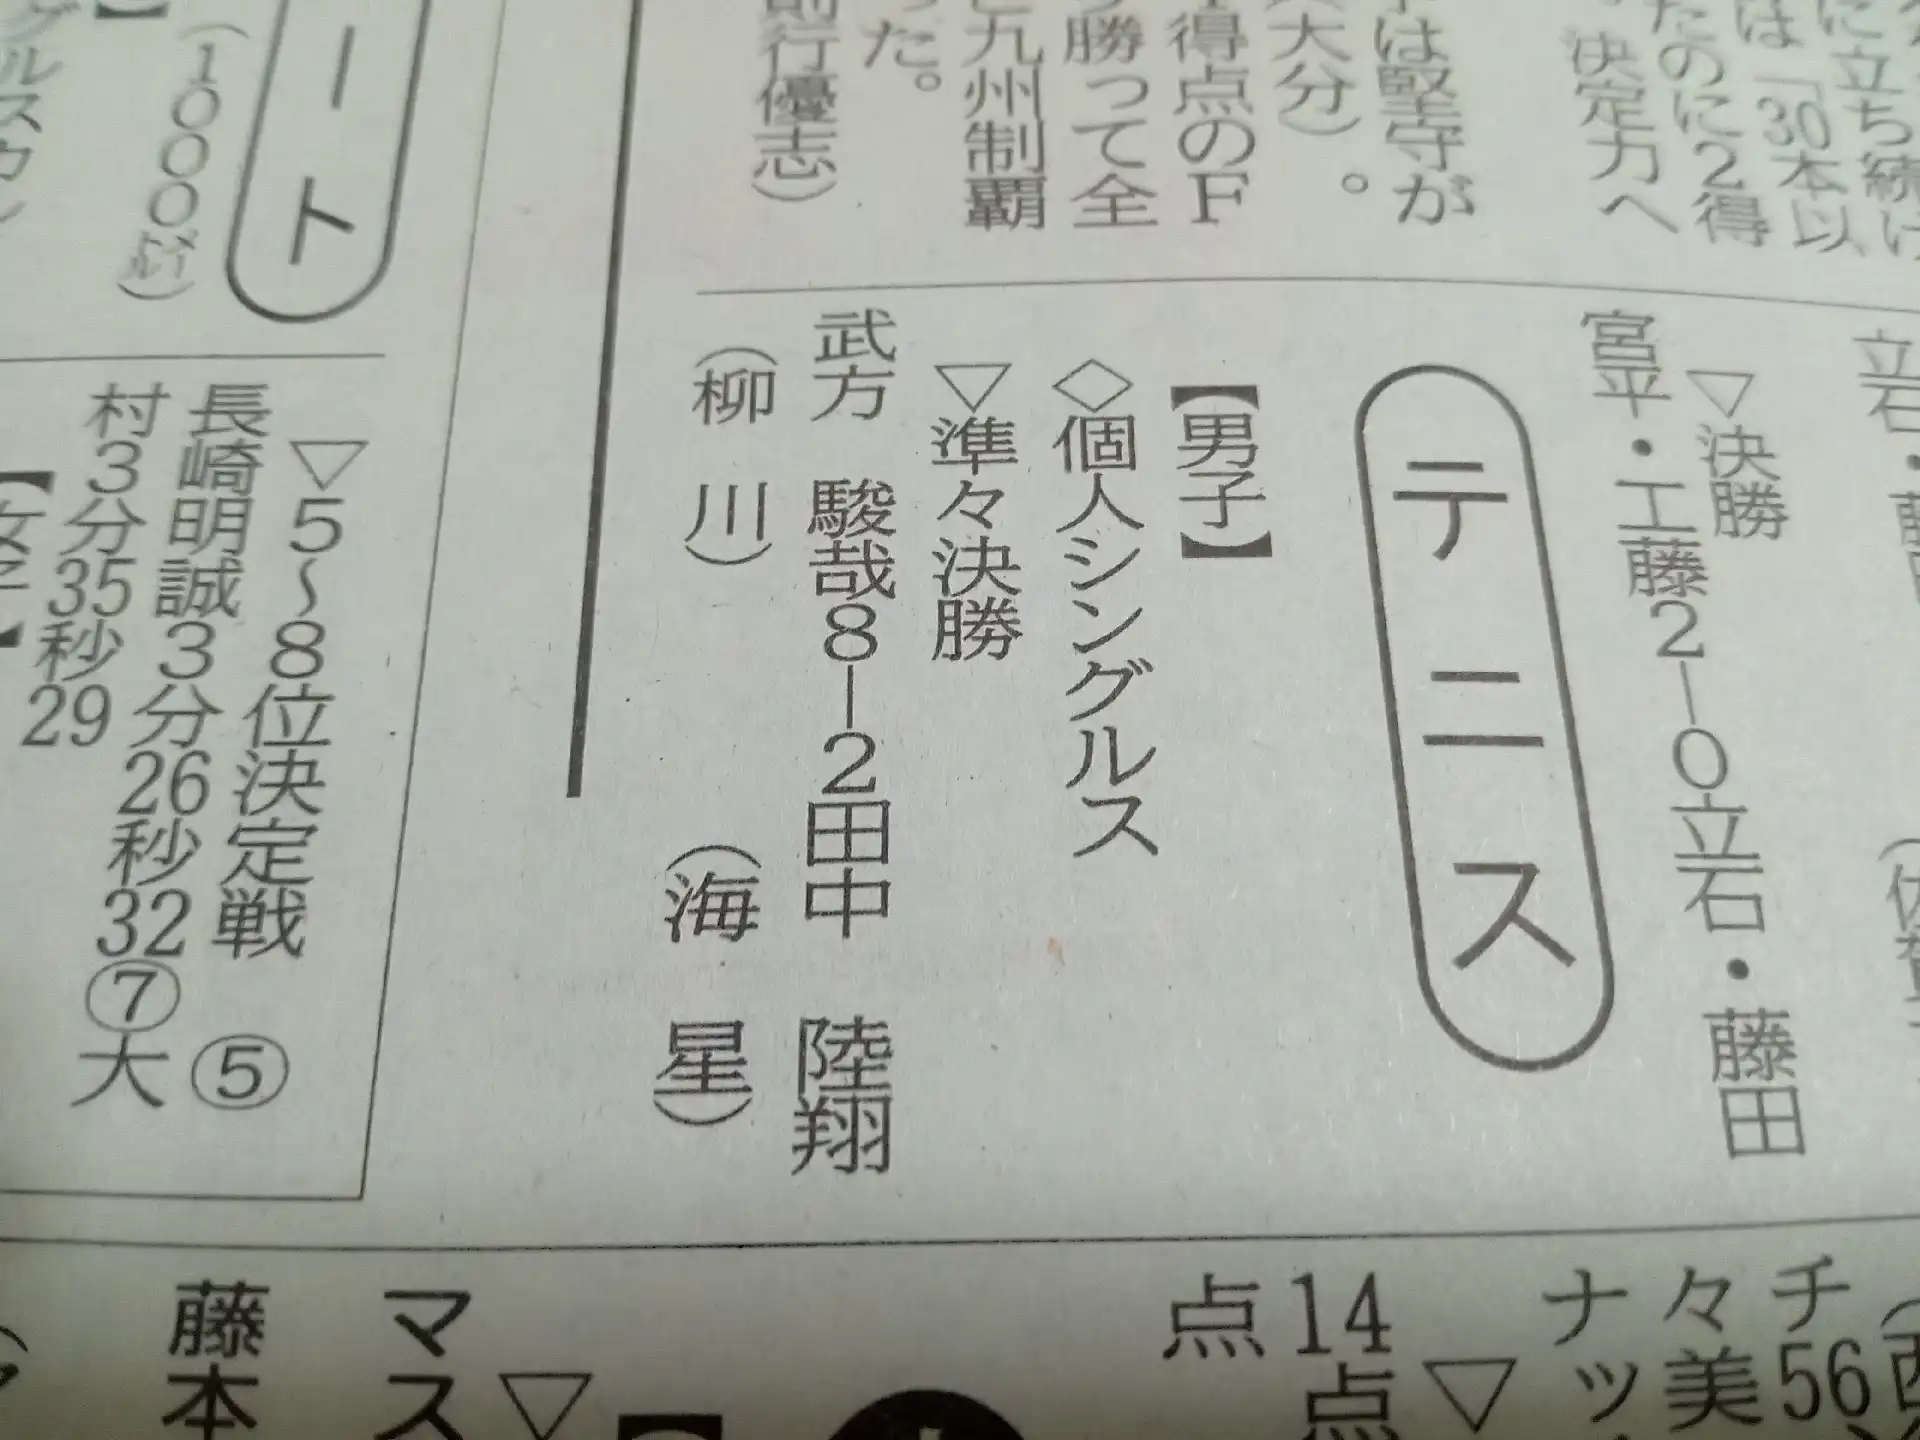 に立ち続け
は「30本以
たのに2得
決定力へ
は堅守が
大分）。
得点のF
勝って全
九州制覇
った。
行優志）
立石・藤田
▽決勝
宮平・工藤2―0立石・藤田
テニス
【男子】
◇個人シングルス
▽準々決勝
武方 駿哉8―2田中 陸翔
（柳川） （海星）
ート
（1000㍍）
▽5～8位決定戦 ⑤
長崎明誠3分26秒32⑦大
村3分35秒29
チ56
々美
ナッ
▽
14点
点
▽
マス
藤本